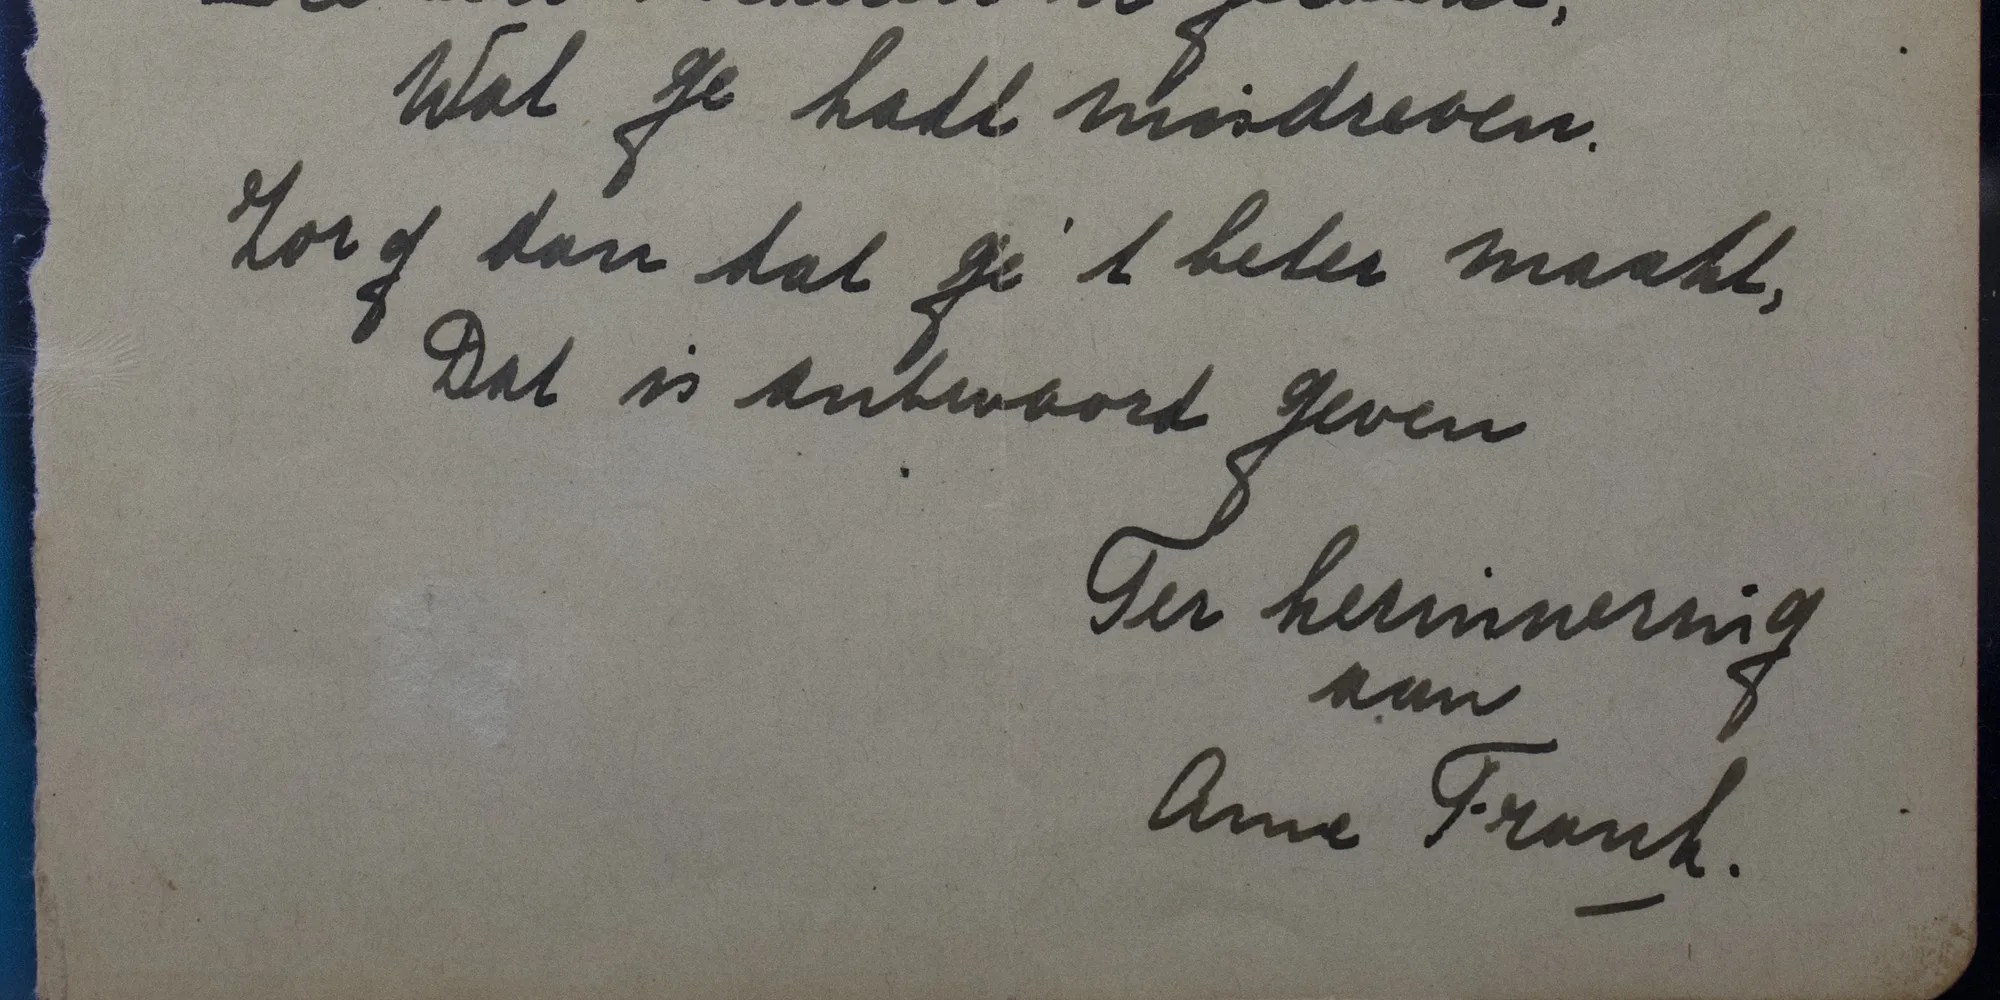 Wat ge hadt misdreven.
Zorg dan dat ge 't beter maakt,
Dat is antwoord geven
Ter herinnering
aan
Anne Frank.